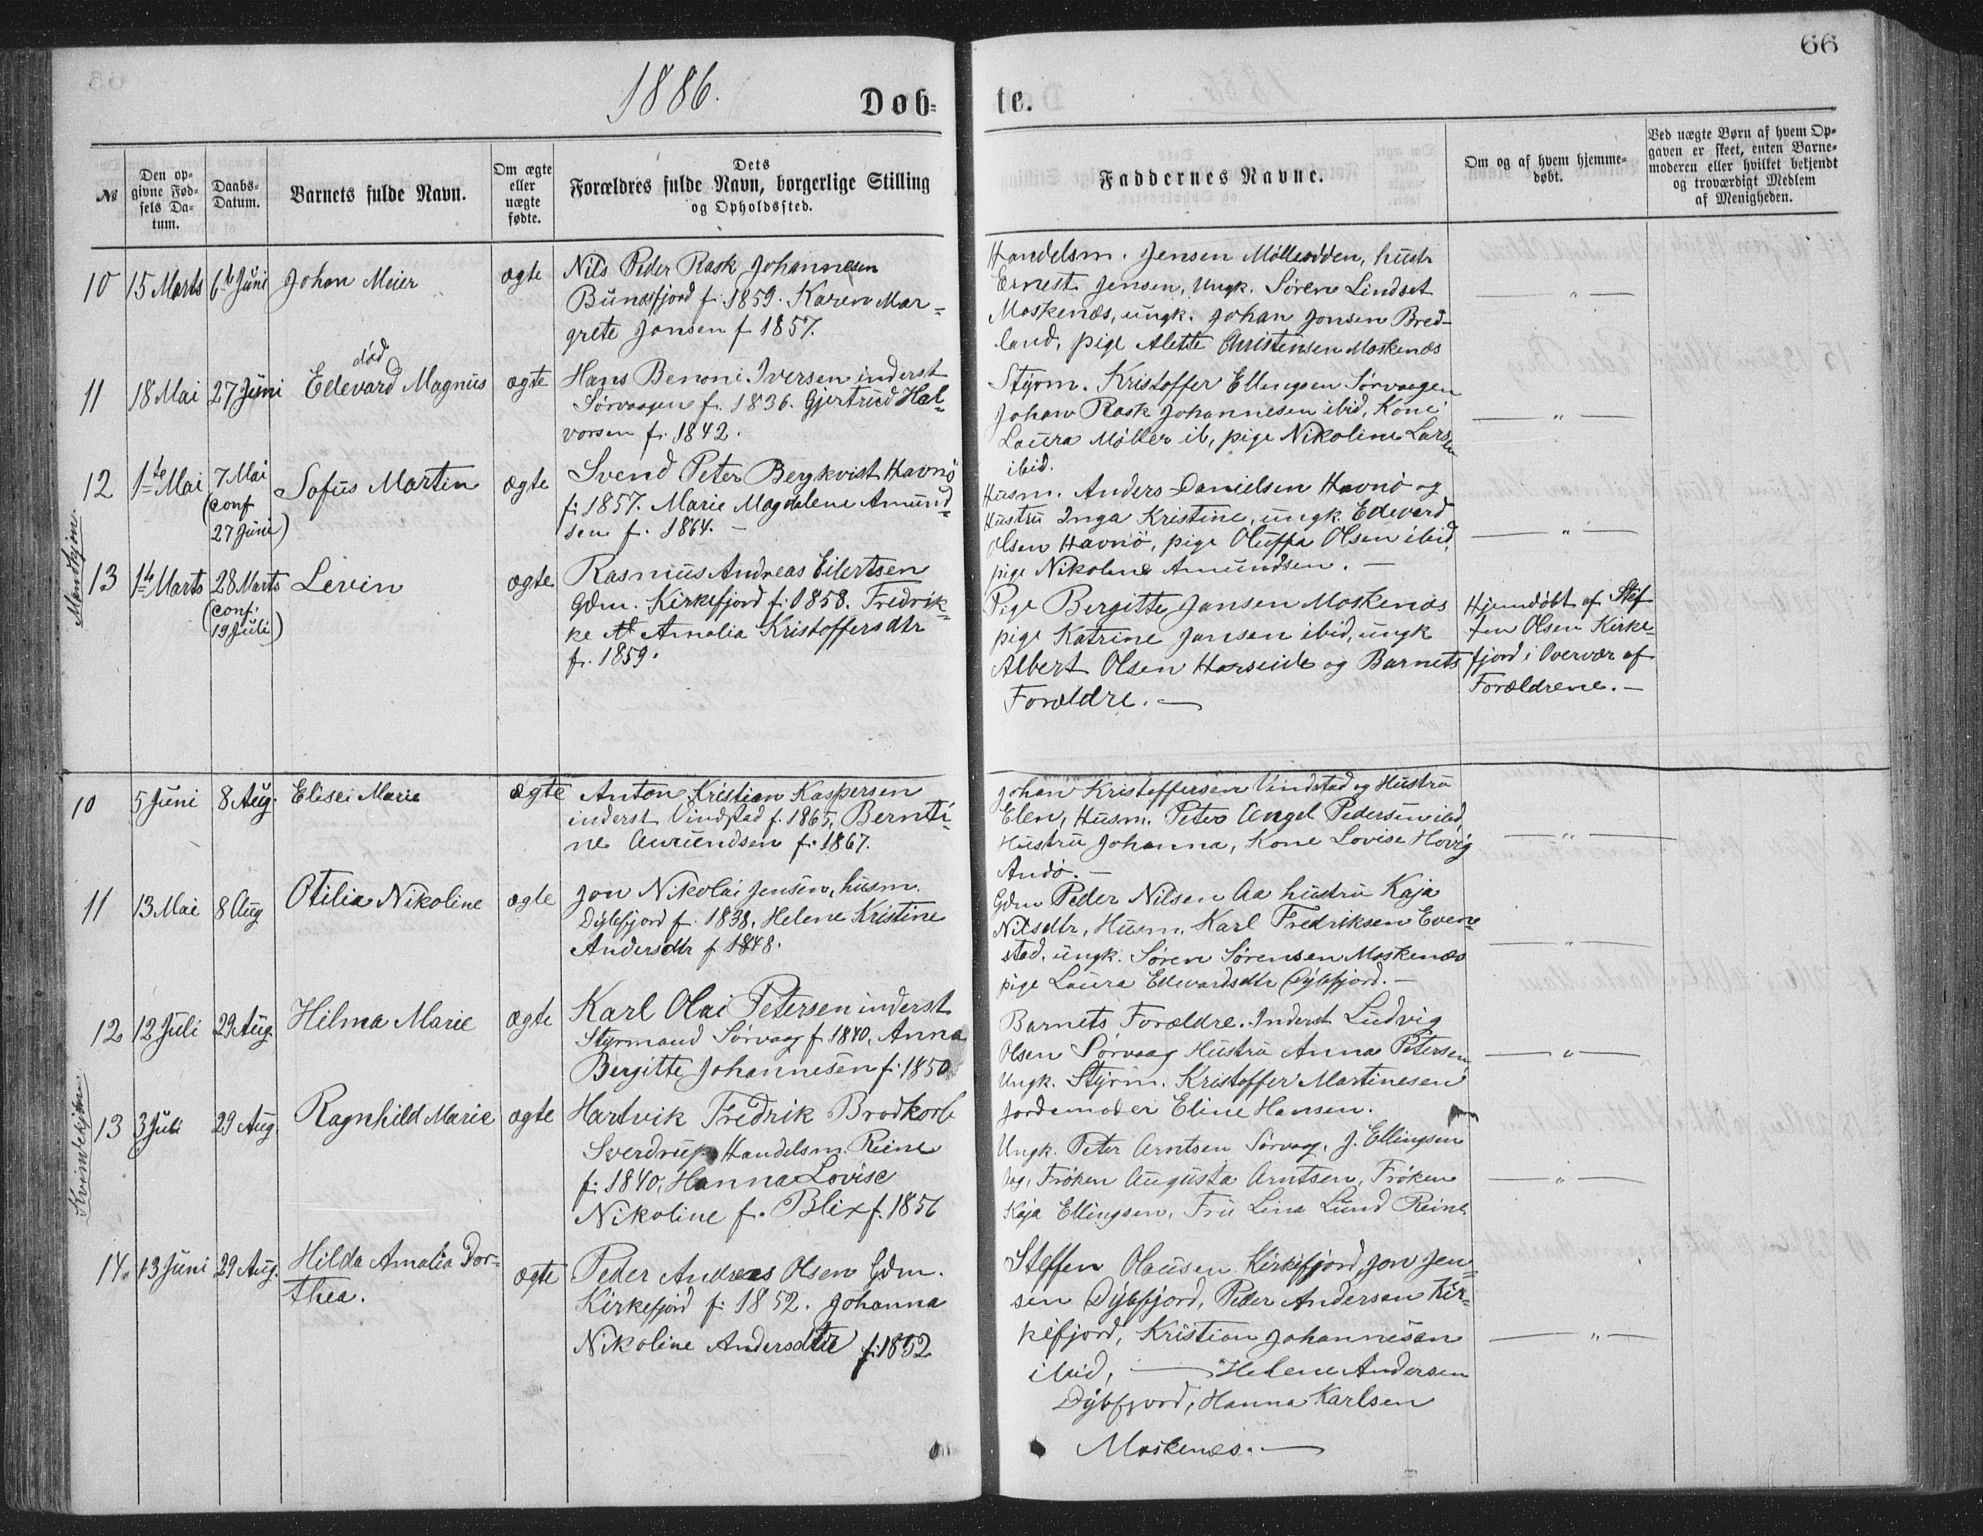 66
1886.
Døb-
te.
№
Den op-
givne Fød-
sels Da-
tum.
Daabs-
Datum.
Barnets fulde Navn.
Om ægte
eller
uægte
fødte.
Dets
Forældres fulde Navn, borgerlige Stilling
og Opholdssted.
Faddernes Navne.
Om og af hvem hjemme-
døbt.
Ved uægte Børn af hvem Op-
gaven er skeet, enten Barne-
moderen eller hvilket bekjendt
og troværdigt Medlem
af Menigheden.
Mandkjøn.
10 15 Marts 6te Juni Johan Meier ægte
Nils Peder Rask Johannesen
Bunæsfjord f. 1859. Karen Mar-
grete Jansen f 1857.
Handelsm. Jensen Mølleodden, hustr
Ernest Jensen, Ungk. Sören Lindset
Moskenæs, ungk. Johan Jonsen Bred-
land, pige Alette Christensen Moskenæs
— " —
død
11 18 Mai 27 Juni Edevard Magnus ægte
Hans Benoni Iversen inderst
Sørvaagen f. 1836. Gjertrud Hal-
vorsen f. 1842.
Styrm. Kristoffer Ellingsen Sørvaagen
Johan Rask Johannesen ibid, Kone
Laura Møller ib, pige Nikoline Larsen
ibid.
— " —
12 1te Mai 7 Mai
(conf
27 Juni)
Sofus Martin ægte
Svend Peter Bergkvist Havnø
f. 1857. Marie Magdalene Amund-
sen f. 1864. —
Husm. Anders Danielsen Havnø og
Hustru Inga Kristine, ungk. Edevard
Olsen Havnö, pige Oluffa Olsen ibid,
pige Nikoline Amundsen. —
— " —
13 1te Marts 28 Marts
(conf.
19 Juli)
Levin ægte
Rasmus Andreas Eilertsen
Gdm. Kirkefjord f. 1858. Fredrik-
ke Amalia Kristoffersdtr
f. 1859.
Pige Bergitte Jansen Moskenæs
pige Katrine Jansen ibid, ungk
Albert Olsen Horseide og Barnets
Forældre. —
Hjemdøbt af Stef
fen Olsen Kirke-
fjord i Overvær af
Forældrene. —
Kvindekjøn.
10 5 Juni 8 Aug. Elisei Marie ægte
Anton Kristian Kaspersen
inderst Vindstad f. 1865, Bernti-
ne Amundsen f. 1867.
Johan Kristoffersen Vindstad og Hustru
Elen, Husm. Peter Angel Pedersen ibid,
Hustru Johanna, Kone Lovise Hovig
Andö. —
— " —
11 13 Mai 8 Aug Otilia Nikoline ægte
Jon Nikolai Jensen, husm.
Dybfjord f. 1838, Helene Kristine
Andersdtr f 1848.
Gdm Peder Nilsen Aa hustru Kaja
Nilsdtr, Husm. Karl Fredriksen Even-
stad, ungk. Sören Sörensen Moskenæs
pige Laura Edevardsdtr Dybfjord. —
— " —
12 12 Juli 29 Aug. Hilma Marie ægte
Karl Olai Petersen inderst
Styrmand Sørvaag f 1840, Anna
Bergitte Johannesen f. 1850
Barnets Forældre. Inderst Ludvig
Olsen Sørvaag Hustru Anna Petersen,
Ungk. Styrm. Kristoffer Martinesen
Jordemoder Eline Hansen.
— " —
13 3 Juli 29 Aug. Ragnhild Marie ægte
Hartvik Fredrik Brodkorb
Sverdrup Handelsm. Reine
f. 1840, Hanna Lovise
Nikoline f. Blix f. 1856
Ungk. Peter Arntsen Sørvag, J. Ellingsen
Frøken Augusta Arntsen, Frøken
Kaja Ellingsen, Fru Lina Lund Reine.
— " —
14. 13 Juni 29 Aug. Hilda Amalia Dor-
thea.
ægte
Peder Andreas Olsen Gdm.
Kirkefjord f. 1852. Johanna
Nikoline Andersdtr f. 1852
Steffen Olausen Kirkefjord, Jon Jen-
sen Dybfjord, Peder Andersen Kir-
kefjord, Kristian Johannesen
ibid, — Helene Andersen
Dybfjord, Hanna Karlsen
Moskenæs. —
— " —